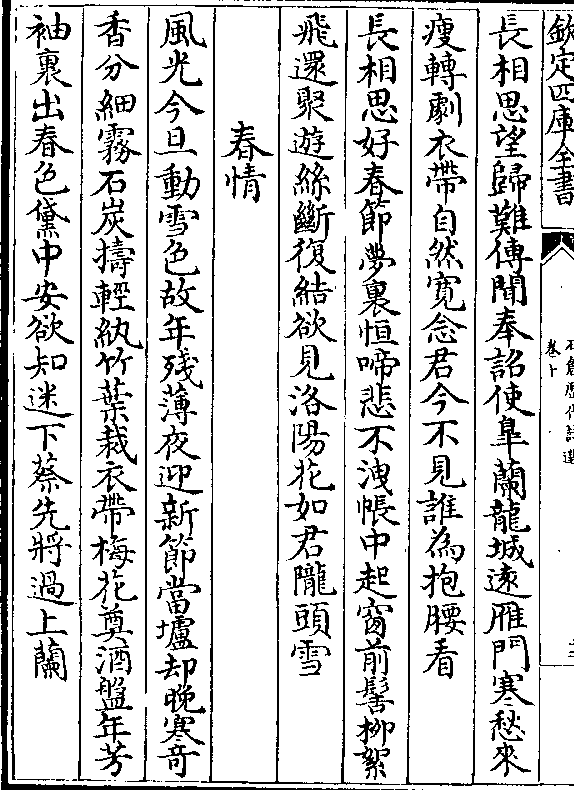 欽定四庫全書
石倉歷代詩選
卷十
長相思望歸難傳聞奉詔使皐蘭龍城逺雁門寒愁來
瘦轉劇衣帶自然寛念君今不見誰為抱腰看
長相思好春節夢裏恒啼悲不洩帳中起窗前髻柳絮
飛還聚遊絲斷復結欲見洛陽花如君隴頭雪
春情
風光今旦動雪色故年殘薄夜迎新節當壚却晚寒奇
香分細霧石炭擣輕紈竹葉裁衣帶梅花奠酒盤年芳
袖裏出春色黛中安欲知迷下蔡先將過上蘭